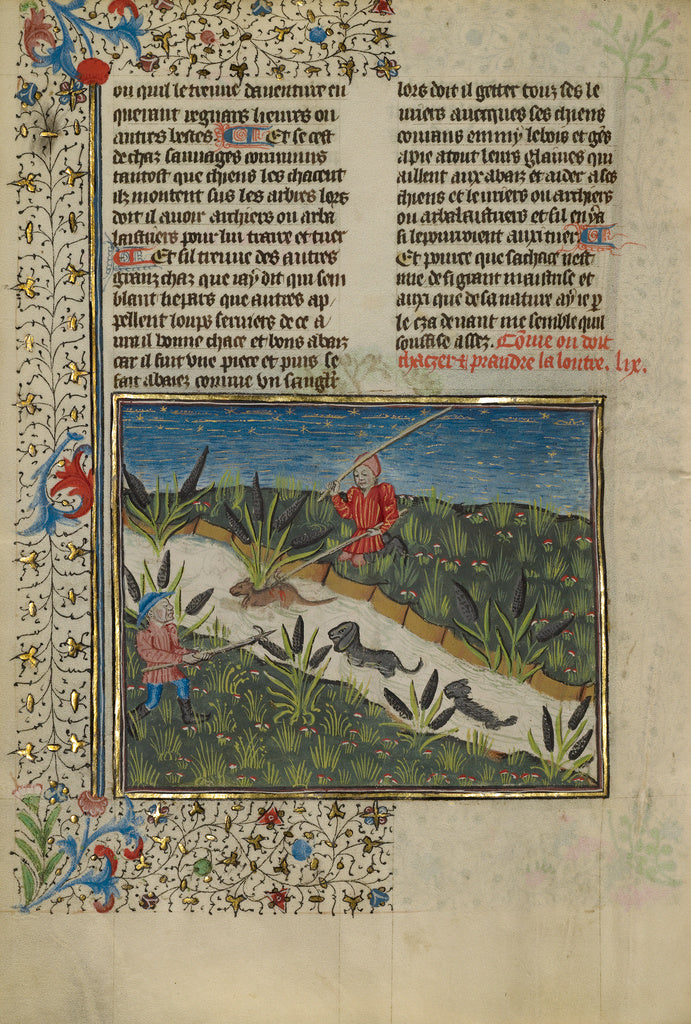 ou quil le treuue dauenture en
querant regnars lieures ou
autres bestes. Et se cest
de chaz sauuages communs
tantost que chiens les chacent
ilz montent sus les arbres lors
doit il auoir archiers ou arba
lastriers pour lui traire et tuer
Et sil treuue des autres
granz chaz que iay dit qui sem
blant liepars que autres ap
pellent loups seruiers de ce a
ura il bonne chace et bons abaiz
car il fuit vne piece et puis se
fait abaier comme vn sanglier
lors doit il getter touz ses le
uriers auecques ses chiens
courans emmy le bois et gens
a pie a tout leurs glaiues qui
aillent aux abaiz et aider a ses
chiens et leuriers ou archiers
ou arbalastriers et sil en y a
si le pourroient aux tuer.
Et pource que sa chace nest
mie de si grant maistrise et
aussi que de sa nature ay ie p
le cza deuant me semble quil
souffise assez. Comme on doit
chacer et prandre la loutre. lix.